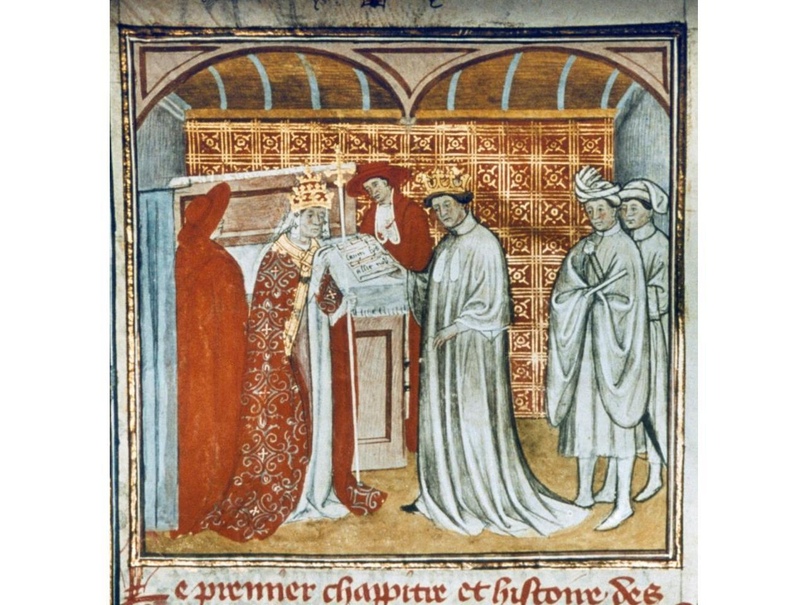 Le premier chappitre et histoire des